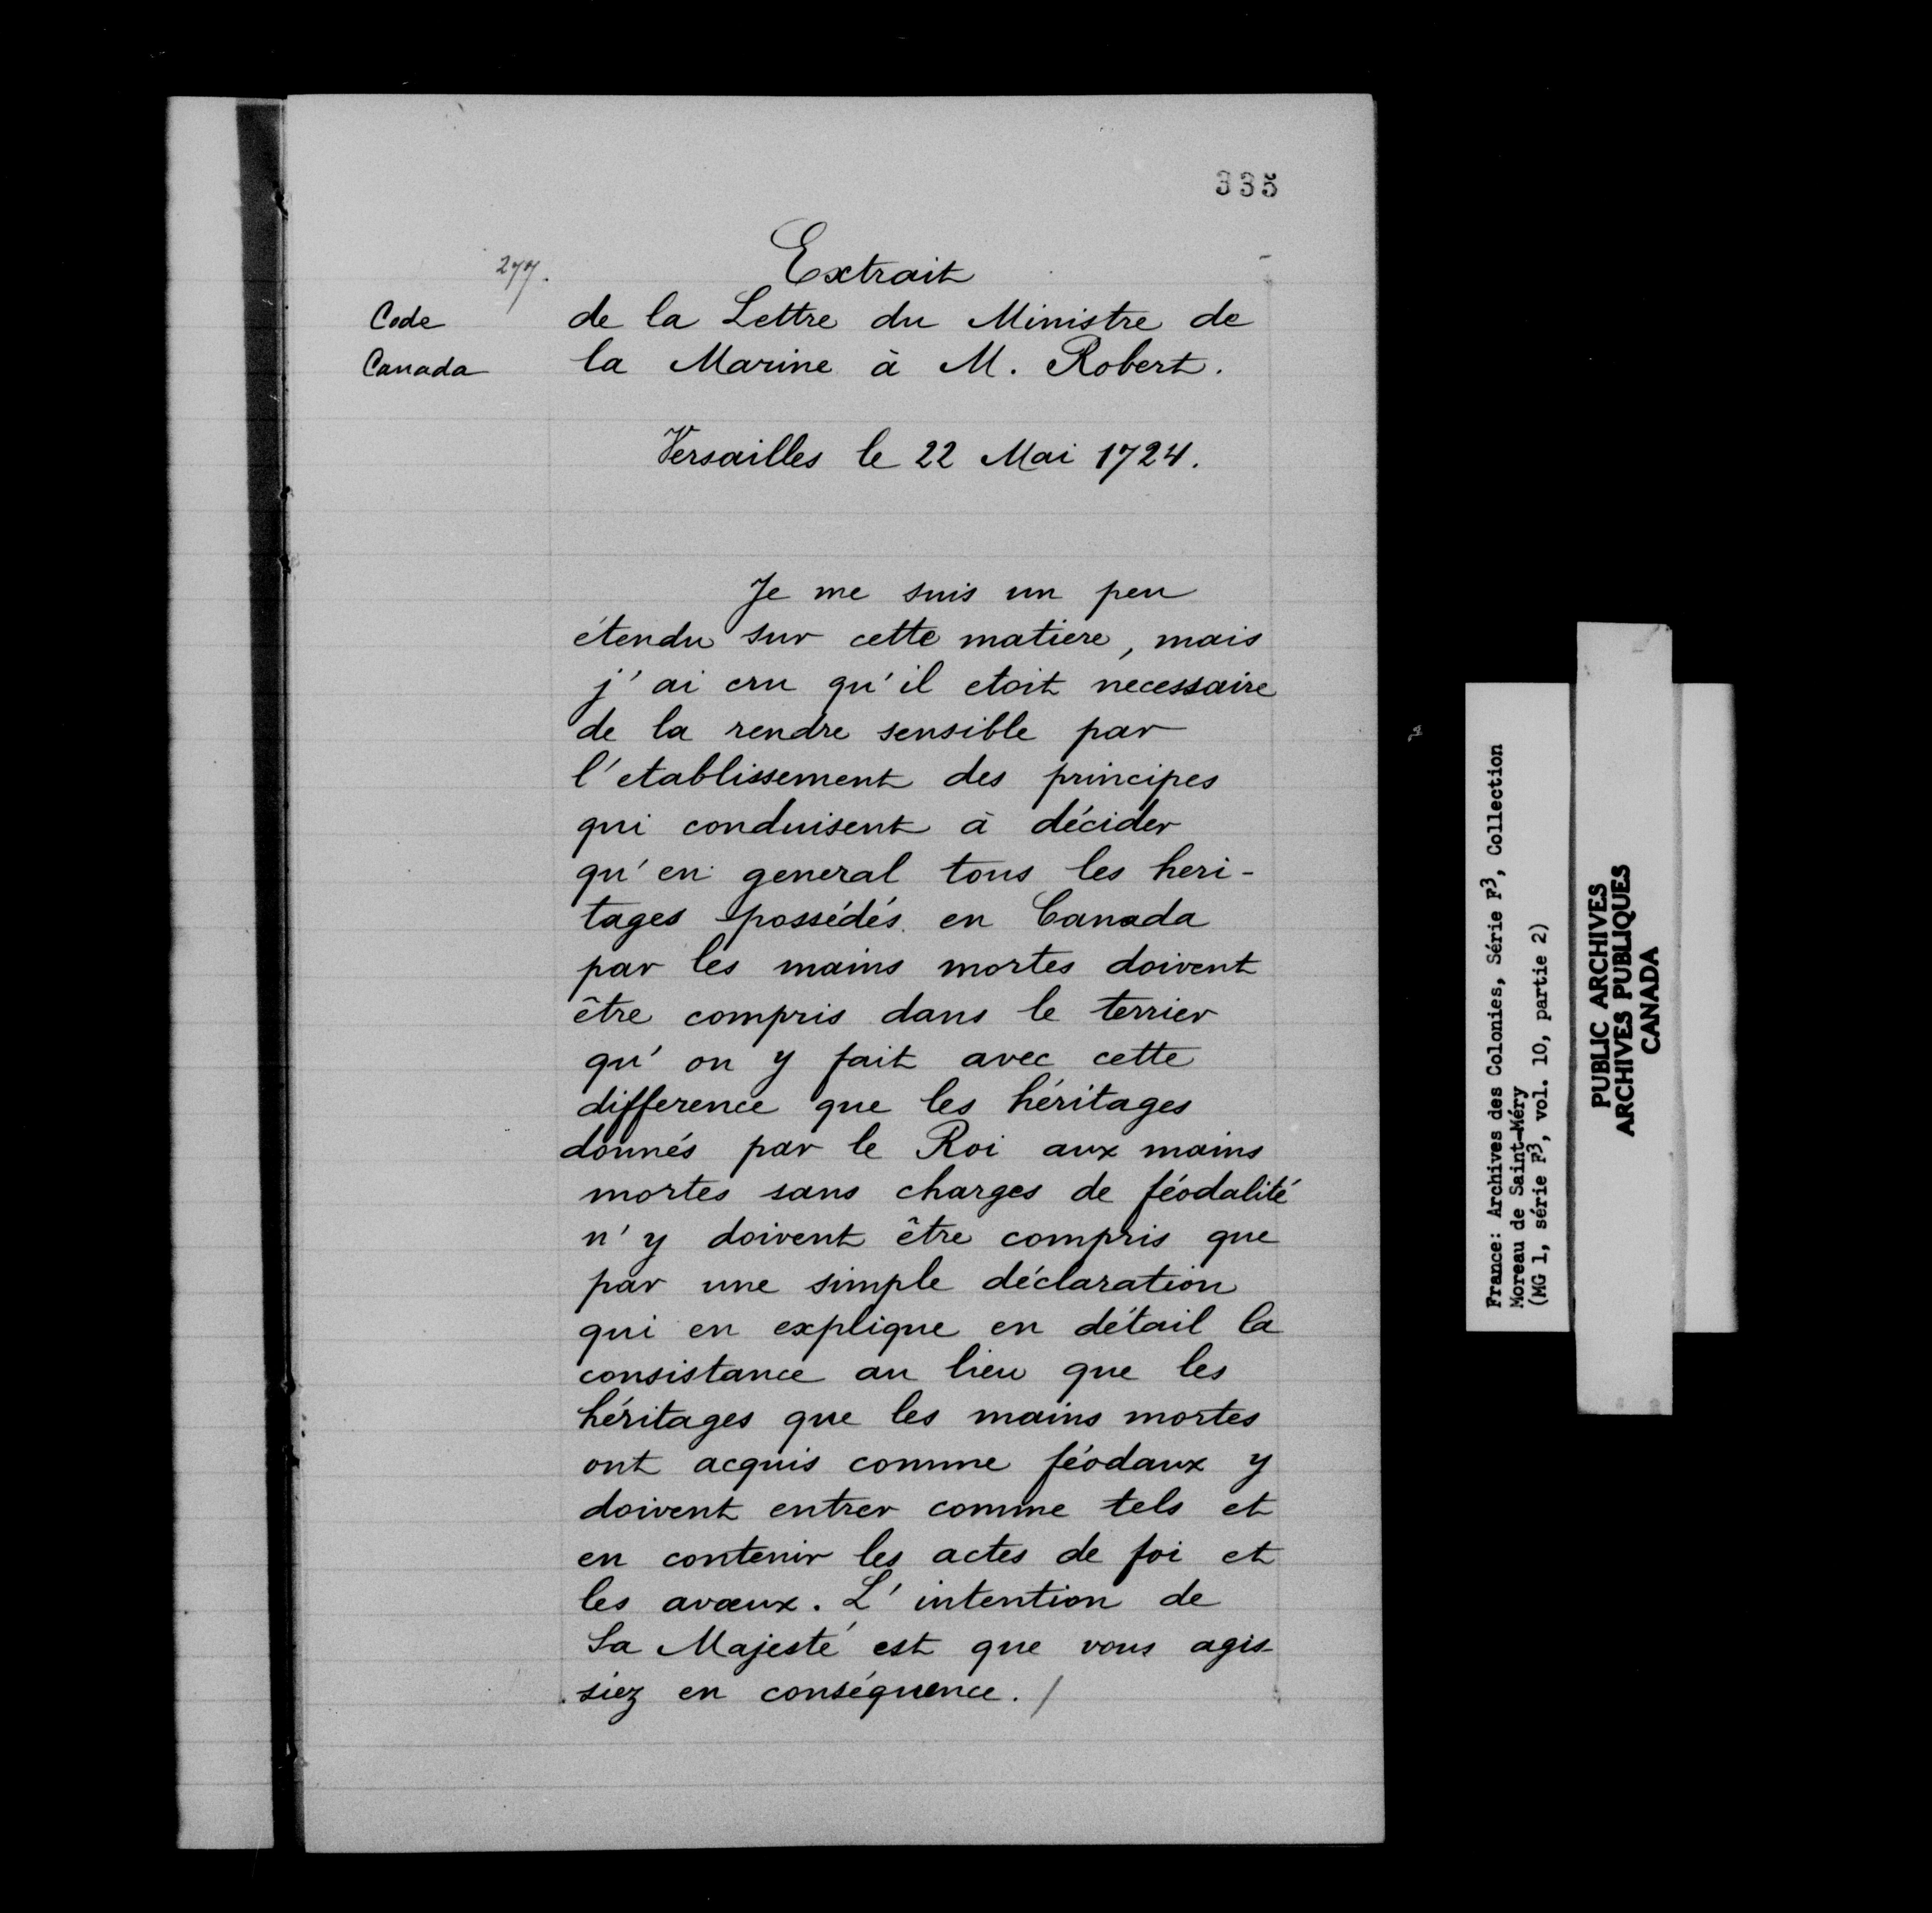 335
277.
Extrait
Code
Canada
de la Lettre du Ministre de
la Marine à M. Robert.
Versailles le 22 Mai 1724.
Je me suis un peu
étendu sur cette matiere, mais
j'ai cru qu'il etoit necessaire
de la rendre sensible par
l'etablissement des principes
qui conduisent à décider
qu'en general tous les heri-
tages possédés en Canada
par les mains mortes doivent
être compris dans le terrier
qu'on y fait avec cette
difference que les héritages
donnés par le Roi aux mains
mortes sans charges de féodalité
n'y doivent être compris que
par une simple déclaration
qui en explique en détail la
consistance au lieu que les
héritages que les mains mortes
ont acquis comme féodaux y
doivent entrer comme tels et
en contenir les actes de foi et
les avœux. L'intention de
Sa Majesté est que vous agis-
siez en conséquence./
France: Archives des Colonies, Série F3, Collection
Moreau de Saint-Méry
(MG 1, série F3, vol. 10, partie 2)
PUBLIC ARCHIVES
ARCHIVES PUBLIQUES
CANADA